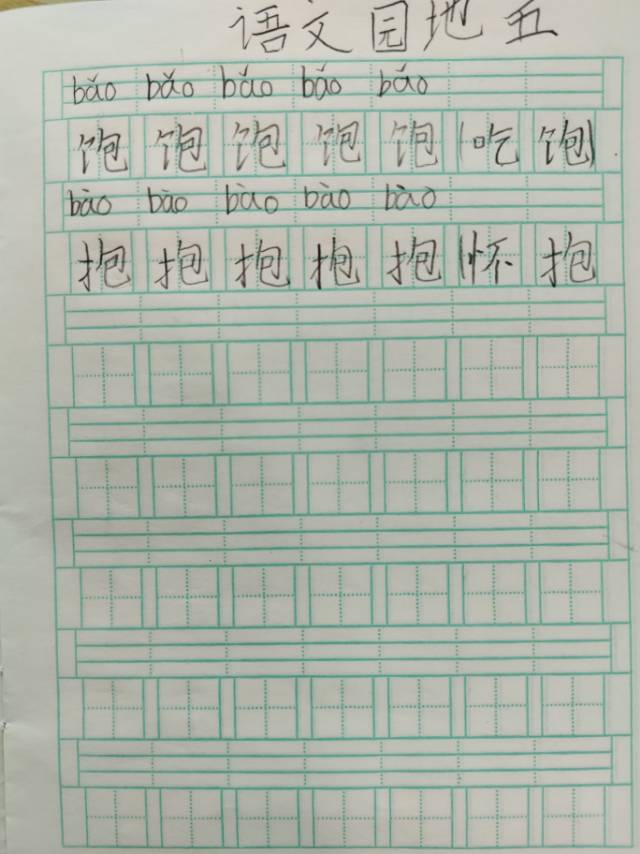 语文园地五
bǎo bǎo bǎo bǎo bǎo
饱 饱 饱 饱 饱 (吃 饱)
bào bào bào bào bào
抱 抱 抱 抱 抱 (怀 抱